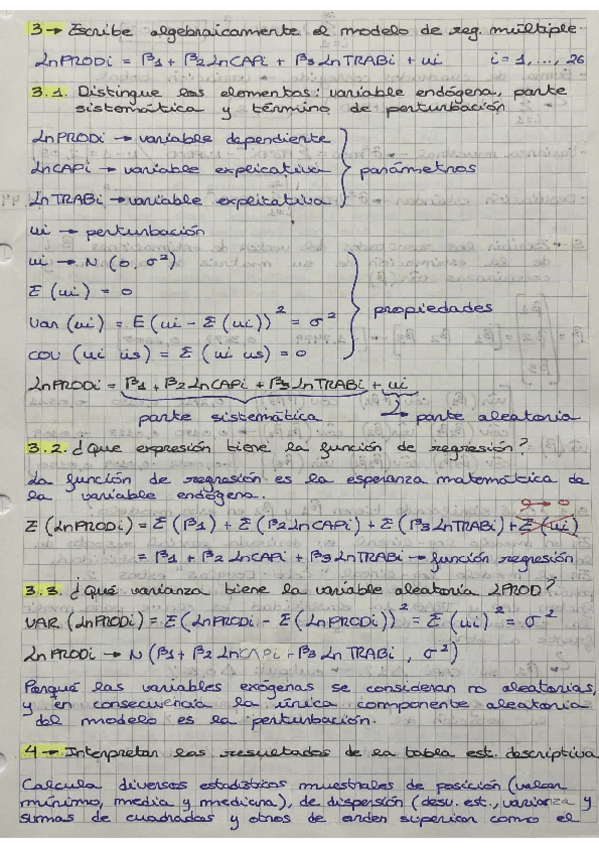 3 → Escribe algebraicamente el modelo de reg. múltiple.
LnPRODi = β1 + β2 LnCAPi + β3 LnTRABi + ui i = 1, ..., 26
3.1. Distingue los elementos: variable endógena, parte
sistemática y término de perturbación
LnPRODi → variable dependiente
LnCAPi → variable explicativa
LnTRABi → variable explicativa
parámetros
ui → perturbación
ui → N (0, σ²)
E (ui) = 0
Var (ui) = E (ui - E (ui))² = σ²
COV (ui us) = E (ui us) = 0
propiedades
LnPRODi = β1 + β2 LnCAPi + β3 LnTRABi + ui
parte sistemática → parte aleatoria
3.2. ¿Que expresión tiene la función de regresión?
La función de regrasión es la esperanza matemática de
la variable endógena.
→ 0
E (LnPRODi) = E (β1) + E (β2 LnCAPi) + E (β3 LnTRABi) + E (ui)
= β1 + β2 LnCAPi + β3 LnTRABi → función regresión
3.3. ¿Qué varianza tiene la variable aleatoria LPROD?
VAR (LnPRODi) = E (LnPRODi - E (LnPRODi))² = E (ui)² = σ²
LnPRODi → N (β1 + β2 LnCAPi + β3 LnTRABi, σ²)
Porqué las variables exógenas se consideran no aleatorias,
y en consecuencia la única componente aleatoria
del modelo es la perturbación.
4 → Interpretar los resultados de la tabla est. descriptiva
Calcula diversos estadísticos muestrales de posición (valor
mínimo, media y mediana), de dispersión (desv. est., varianza y
sumas de cuadrados y otros de orden superior como el